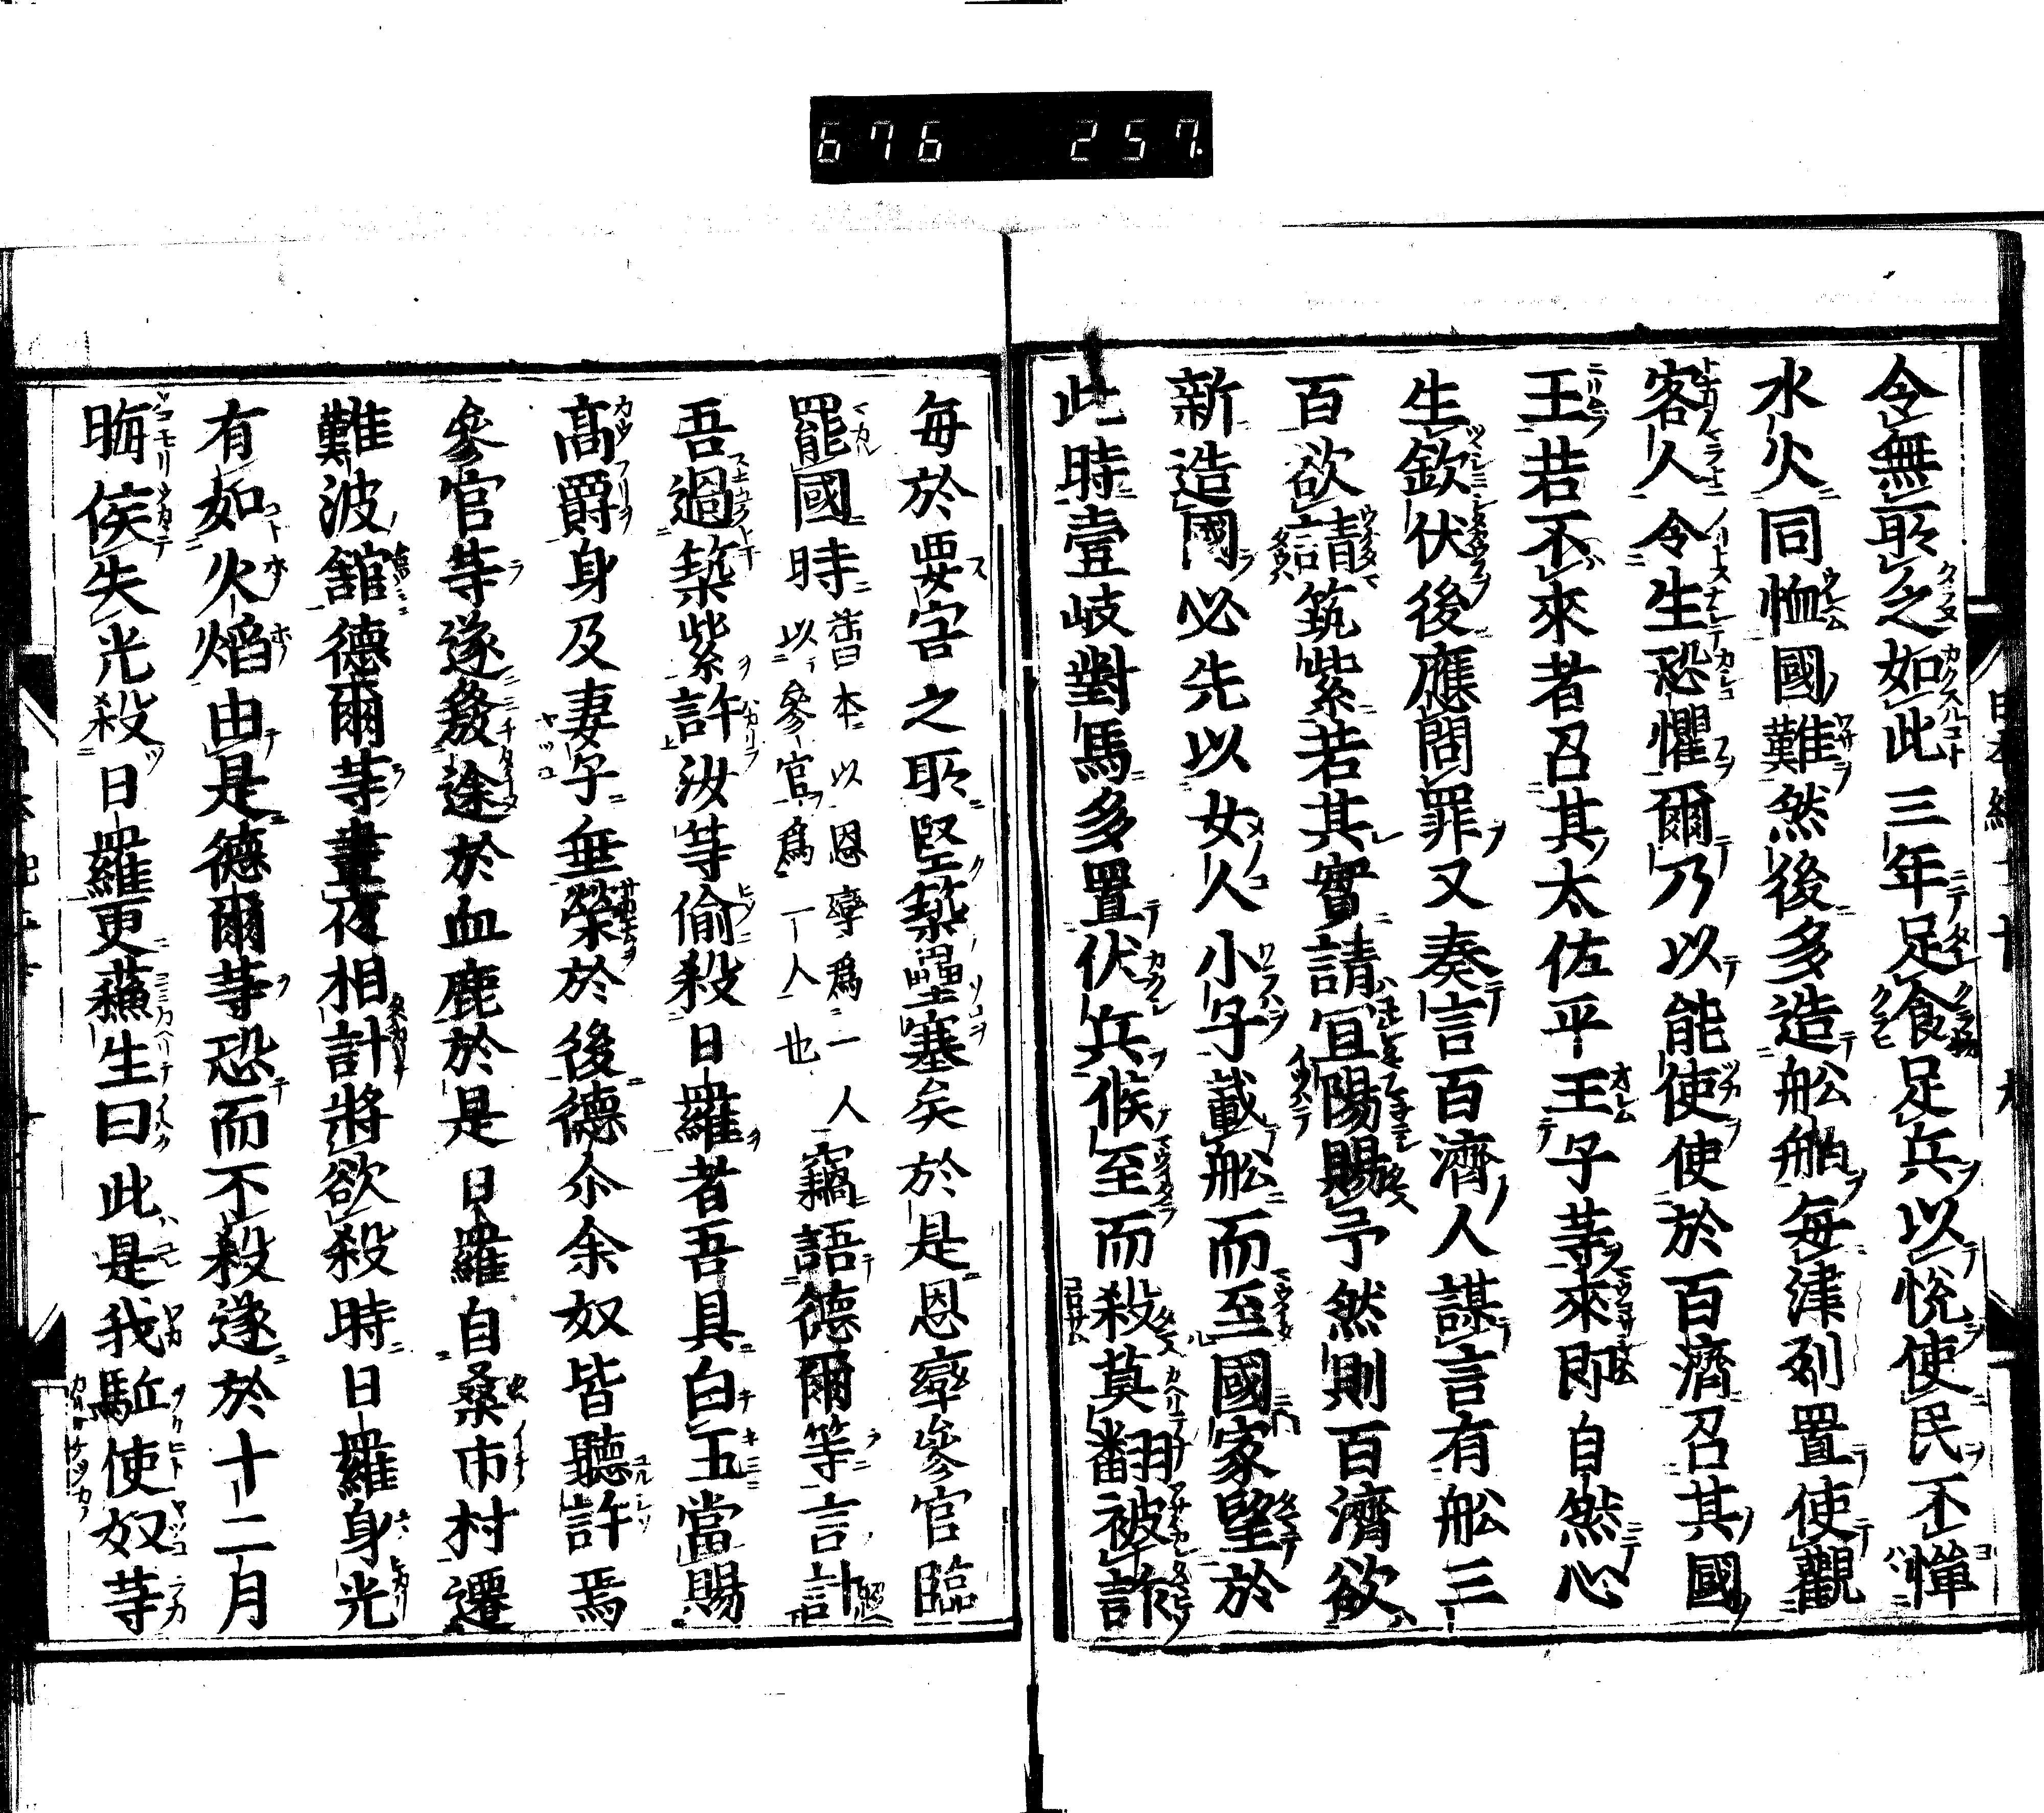 676 257
令無所乏如此三年足食足兵以悅使民不憚
水火同恤國難然後多造舩舶毎津列置使觀
客人令生恐懼爾乃以能使使於百濟召其國
王若不來者召其太佐平王子等來即自然心
生欽伏後應問罪又奏言百濟人謀言有舩三
百欲請筑紫若其實請宜陽賜予然則百濟欲
新造國必先以女人小子載舩而至國家望於
此時壹岐對馬多置伏兵候至而殺莫翻被詐
毎於要害之所堅築壘塞矣於是恩率參官臨
罷國時舊本以恩率爲一人以參官爲一人也竊語德爾等言計
吾過築紫許汝等偷殺日羅者吾具白王當賜
髙爵身及妻子垂榮於後德尒余奴皆聽許焉
參官等遂發途於血鹿於是日羅自桑市村遷
難波舘德爾等晝夜相計將欲殺時日羅身光
有如火焰由是德爾等恐而不殺遂於十二月
晦候失光殺日羅更蘇生曰此是我駈使奴等